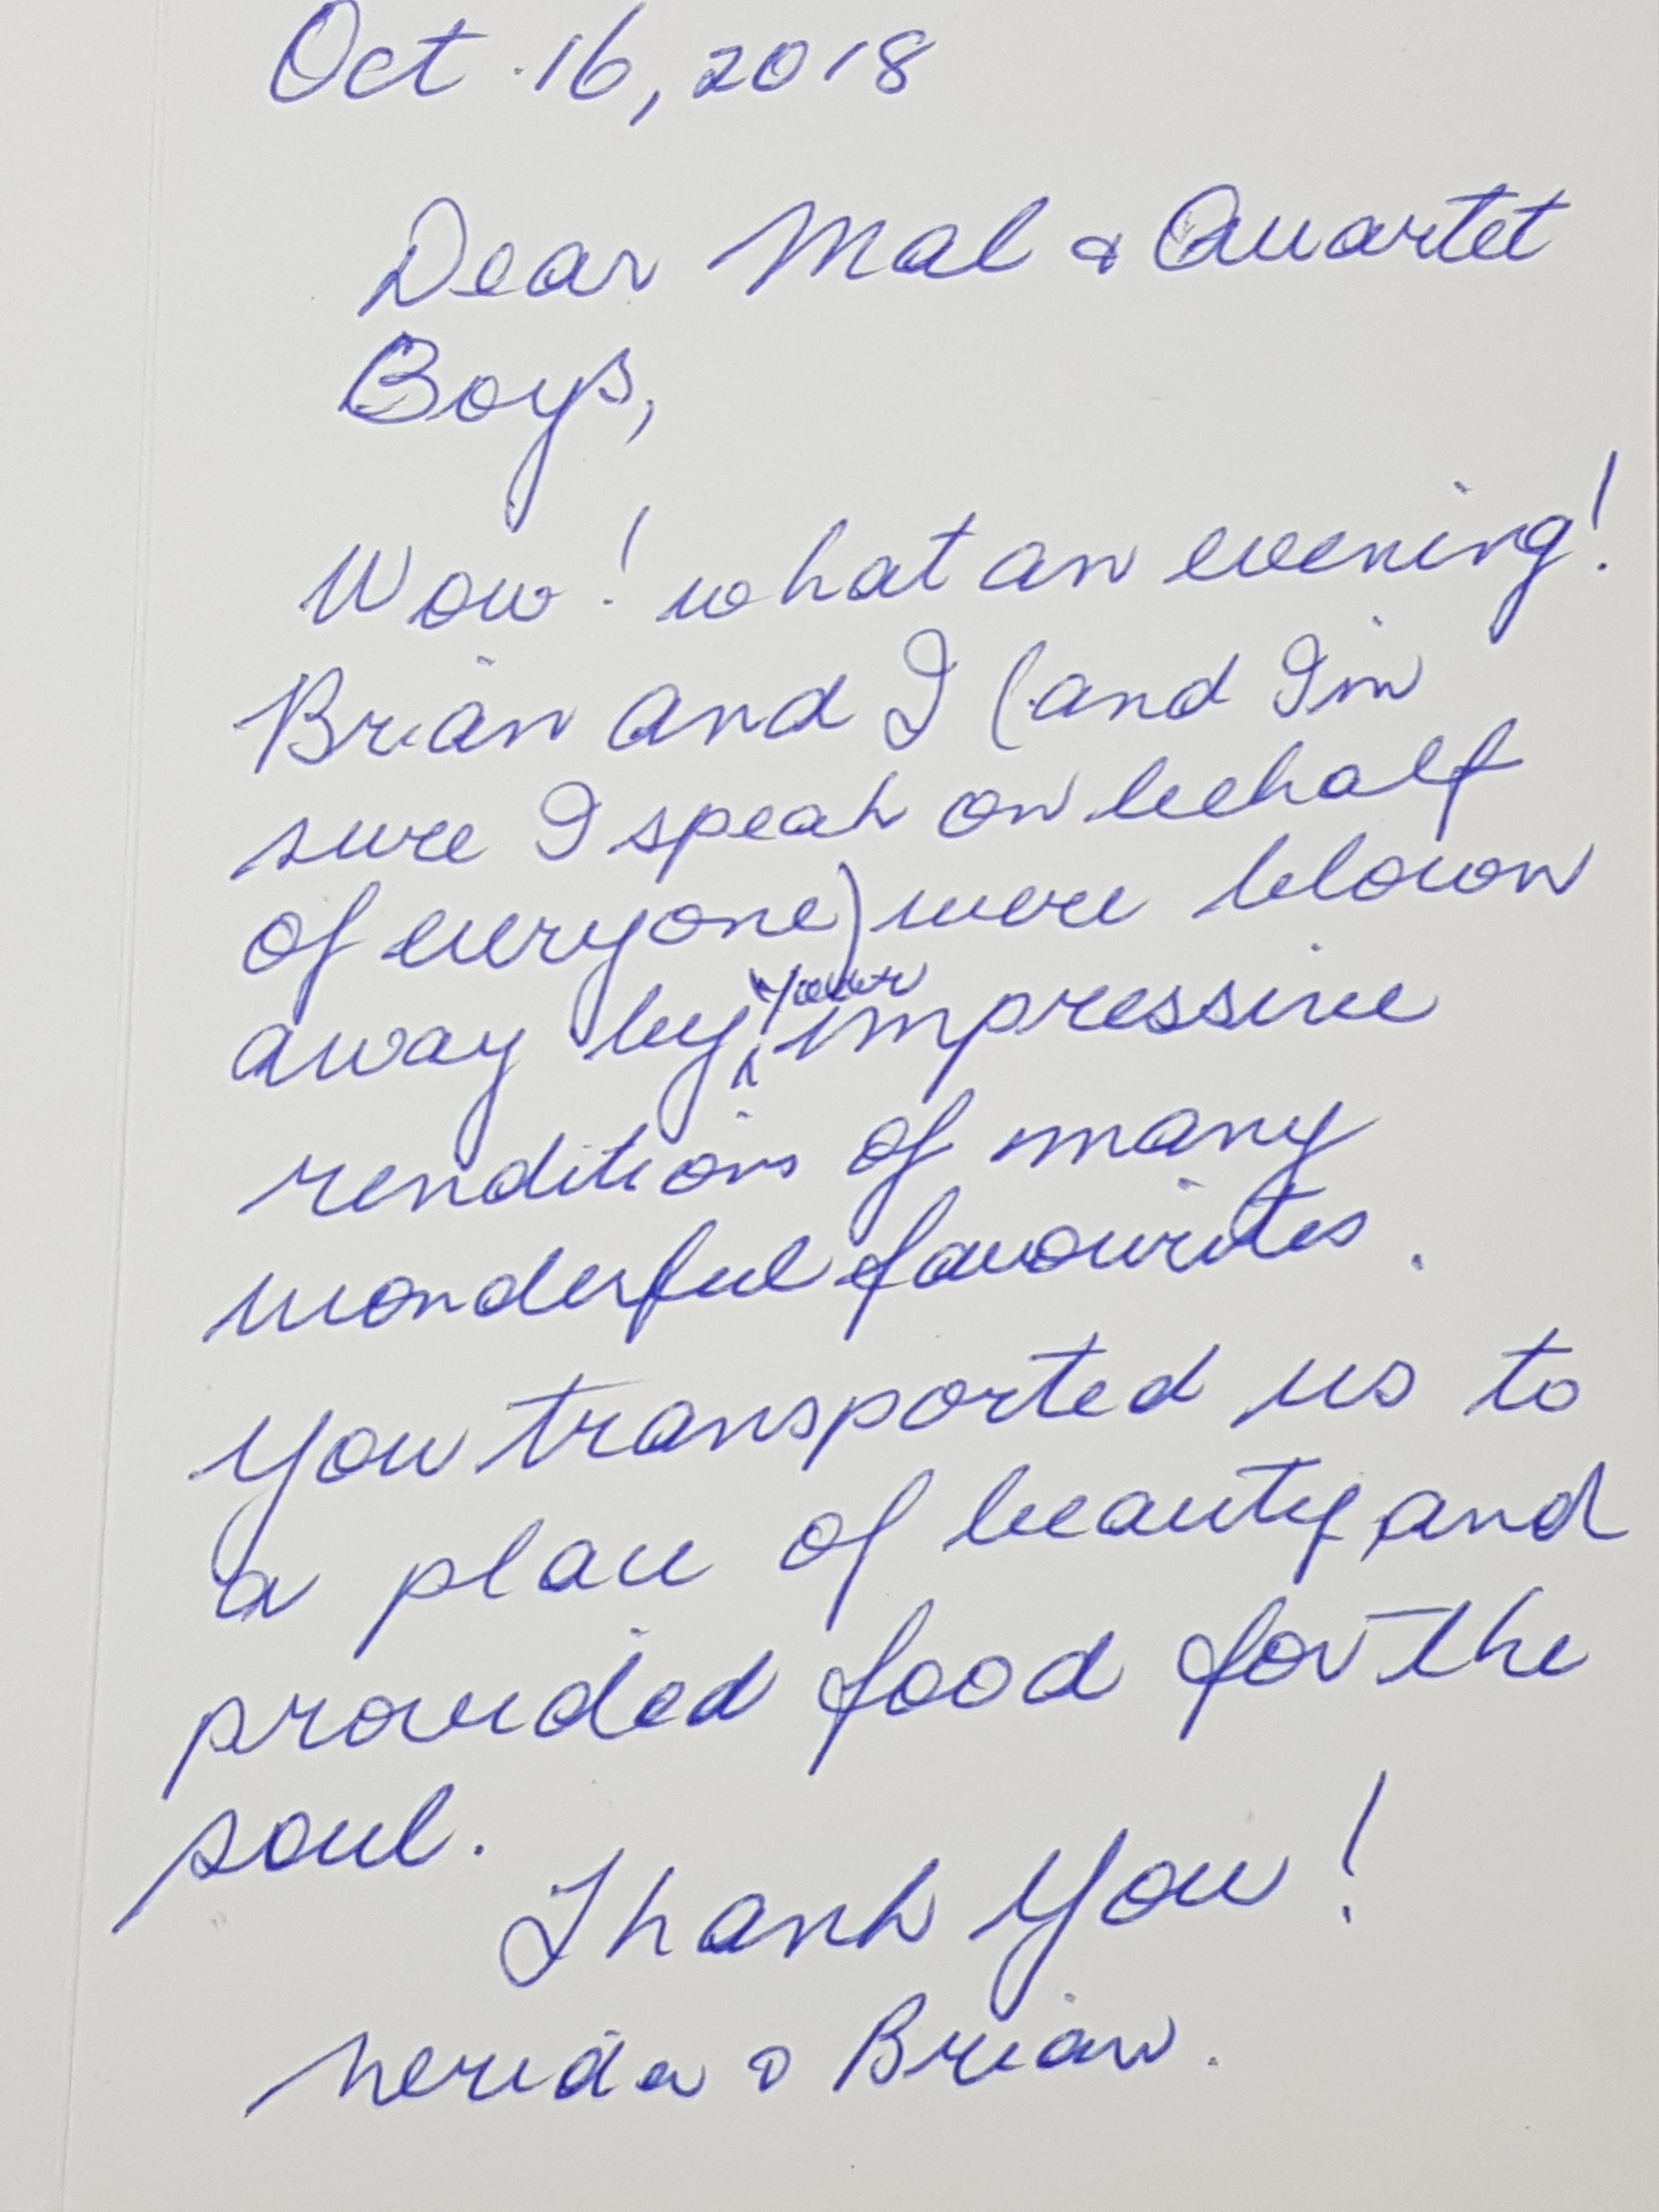 Oct. 16, 2018
Dear Mal & Quartet
Boys,
Wow! what an evening!
Brian and I (and I'm
sure I speak on behalf
of everyone) were blown
away by your impressive
renditions of many
wonderful favourites.
You transported us to
a place of beauty and
provided food for the
soul.
Thank You!
Nerida & Brian.